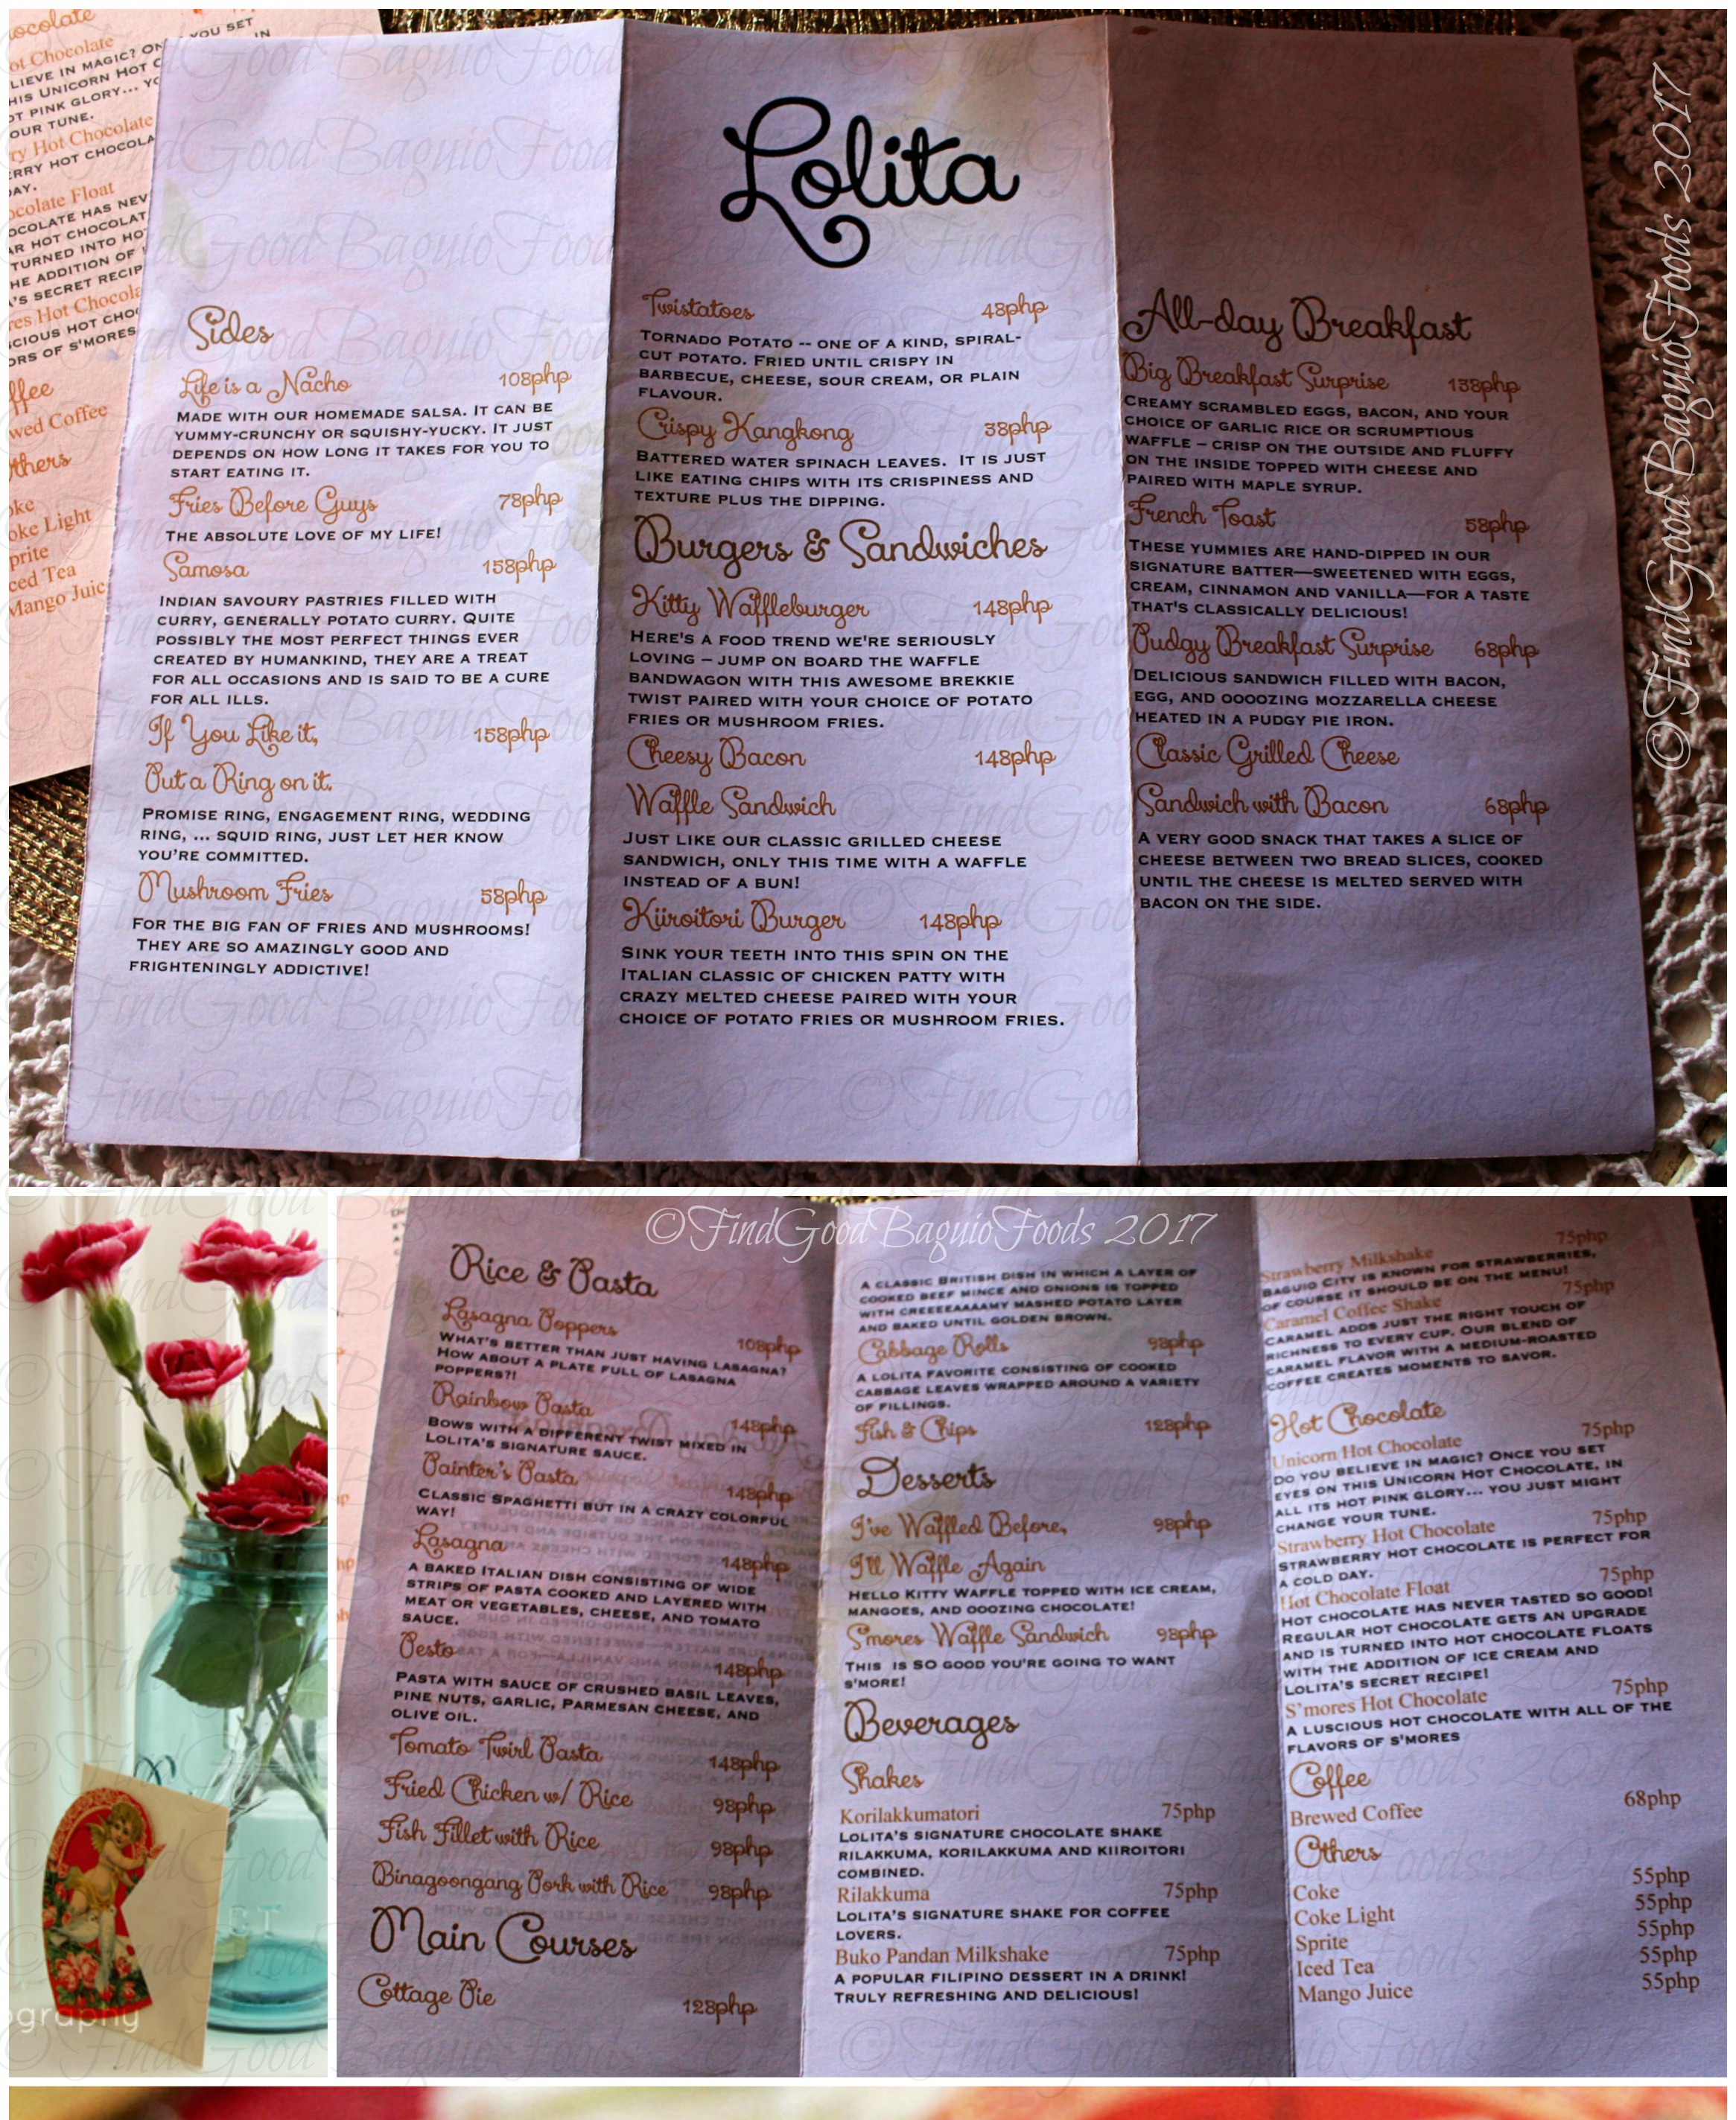 ocolate
ot Chocolate
LIEVE IN MAGIC? ON YOU SET
HIS UNICORN HOT C IN
OT PINK GLORY... YO
OUR TUNE.
ry Hot Chocolate
ERRY HOT CHOCOLA
DAY.
ocolate Float
OCOLATE HAS NEV
AR HOT CHOCOLAT
TURNED INTO HO
HE ADDITION OF
A'S SECRET RECIP
res Hot Chocola
CIOUS HOT CHO
ORS OF S'MORES
ffee
wed Coffee
thers
oke
oke Light
prite
ced Tea
Mango Juic
Sides
Life is a Nacho 108php
MADE WITH OUR HOMEMADE SALSA. IT CAN BE
YUMMY-CRUNCHY OR SQUISHY-YUCKY. IT JUST
DEPENDS ON HOW LONG IT TAKES FOR YOU TO
START EATING IT.
Fries Before Guys 78php
THE ABSOLUTE LOVE OF MY LIFE!
Samosa 158php
INDIAN SAVOURY PASTRIES FILLED WITH
CURRY, GENERALLY POTATO CURRY. QUITE
POSSIBLY THE MOST PERFECT THINGS EVER
CREATED BY HUMANKIND, THEY ARE A TREAT
FOR ALL OCCASIONS AND IS SAID TO BE A CURE
FOR ALL ILLS.
If You Like it, 158php
Put a Ring on it.
PROMISE RING, ENGAGEMENT RING, WEDDING
RING, ... SQUID RING, JUST LET HER KNOW
YOU'RE COMMITTED.
Mushroom Fries 58php
FOR THE BIG FAN OF FRIES AND MUSHROOMS!
THEY ARE SO AMAZINGLY GOOD AND
FRIGHTENINGLY ADDICTIVE!
Lolita
Twistatoes 48php
TORNADO POTATO -- ONE OF A KIND, SPIRAL-
CUT POTATO. FRIED UNTIL CRISPY IN
BARBECUE, CHEESE, SOUR CREAM, OR PLAIN
FLAVOUR.
Crispy Kangkong 38php
BATTERED WATER SPINACH LEAVES. IT IS JUST
LIKE EATING CHIPS WITH ITS CRISPINESS AND
TEXTURE PLUS THE DIPPING.
Burgers & Sandwiches
Kitty Waffleburger 148php
HERE'S A FOOD TREND WE'RE SERIOUSLY
LOVING – JUMP ON BOARD THE WAFFLE
BANDWAGON WITH THIS AWESOME BREKKIE
TWIST PAIRED WITH YOUR CHOICE OF POTATO
FRIES OR MUSHROOM FRIES.
Cheesy Bacon 148php
Waffle Sandwich
JUST LIKE OUR CLASSIC GRILLED CHEESE
SANDWICH, ONLY THIS TIME WITH A WAFFLE
INSTEAD OF A BUN!
Kiiroitori Burger 148php
SINK YOUR TEETH INTO THIS SPIN ON THE
ITALIAN CLASSIC OF CHICKEN PATTY WITH
CRAZY MELTED CHEESE PAIRED WITH YOUR
CHOICE OF POTATO FRIES OR MUSHROOM FRIES.
All-day Breakfast
Big Breakfast Surprise 138php
CREAMY SCRAMBLED EGGS, BACON, AND YOUR
CHOICE OF GARLIC RICE OR SCRUMPTIOUS
WAFFLE – CRISP ON THE OUTSIDE AND FLUFFY
ON THE INSIDE TOPPED WITH CHEESE AND
PAIRED WITH MAPLE SYRUP.
French Toast 58php
THESE YUMMIES ARE HAND-DIPPED IN OUR
SIGNATURE BATTER—SWEETENED WITH EGGS,
CREAM, CINNAMON AND VANILLA—FOR A TASTE
THAT'S CLASSICALLY DELICIOUS!
Pudgy Breakfast Surprise 68php
DELICIOUS SANDWICH FILLED WITH BACON,
EGG, AND OOOOZING MOZZARELLA CHEESE
HEATED IN A PUDGY PIE IRON.
Classic Grilled Cheese
Sandwich with Bacon 68php
A VERY GOOD SNACK THAT TAKES A SLICE OF
CHEESE BETWEEN TWO BREAD SLICES, COOKED
UNTIL THE CHEESE IS MELTED SERVED WITH
BACON ON THE SIDE.
©FindGoodBaguioFoods 2017
©FindGoodBaguioFoods 2017
ography
Rice & Pasta
Lasagna Poppers 108php
WHAT'S BETTER THAN JUST HAVING LASAGNA?
HOW ABOUT A PLATE FULL OF LASAGNA
POPPERS?!
Rainbow Pasta 148php
BOWS WITH A DIFFERENT TWIST MIXED IN
LOLITA'S SIGNATURE SAUCE.
Painter's Pasta 148php
CLASSIC SPAGHETTI BUT IN A CRAZY COLORFUL
WAY!
Lasagna 148php
A BAKED ITALIAN DISH CONSISTING OF WIDE
STRIPS OF PASTA COOKED AND LAYERED WITH
MEAT OR VEGETABLES, CHEESE, AND TOMATO
SAUCE.
Pesto 148php
PASTA WITH SAUCE OF CRUSHED BASIL LEAVES,
PINE NUTS, GARLIC, PARMESAN CHEESE, AND
OLIVE OIL.
Tomato Twirl Pasta 148php
Fried Chicken w/ Rice 98php
Fish Fillet with Rice 98php
Binagoongang Pork with Rice 98php
Main Courses
Cottage Pie 128php
A CLASSIC BRITISH DISH IN WHICH A LAYER OF
COOKED BEEF MINCE AND ONIONS IS TOPPED
WITH CREEEEAAAAMY MASHED POTATO LAYER
AND BAKED UNTIL GOLDEN BROWN.
Cabbage Rolls 98php
A LOLITA FAVORITE CONSISTING OF COOKED
CABBAGE LEAVES WRAPPED AROUND A VARIETY
OF FILLINGS.
Fish & Chips 128php
Desserts
I've Waffled Before, 98php
I'll Waffle Again
HELLO KITTY WAFFLE TOPPED WITH ICE CREAM,
MANGOES, AND OOOZING CHOCOLATE!
S'mores Waffle Sandwich 98php
THIS IS SO GOOD YOU'RE GOING TO WANT
S'MORE!
Beverages
Shakes
Korilakkumatori 75php
LOLITA'S SIGNATURE CHOCOLATE SHAKE
RILAKKUMA, KORILAKKUMA AND KIIROITORI
COMBINED.
Rilakkuma 75php
LOLITA'S SIGNATURE SHAKE FOR COFFEE
LOVERS.
Buko Pandan Milkshake 75php
A POPULAR FILIPINO DESSERT IN A DRINK!
TRULY REFRESHING AND DELICIOUS!
Strawberry Milkshake 75php
BAGUIO CITY IS KNOWN FOR STRAWBERRIES,
OF COURSE IT SHOULD BE ON THE MENU!
Caramel Coffee Shake 75php
CARAMEL ADDS JUST THE RIGHT TOUCH OF
RICHNESS TO EVERY CUP. OUR BLEND OF
CARAMEL FLAVOR WITH A MEDIUM-ROASTED
COFFEE CREATES MOMENTS TO SAVOR.
Hot Chocolate
Unicorn Hot Chocolate 75php
DO YOU BELIEVE IN MAGIC? ONCE YOU SET
EYES ON THIS UNICORN HOT CHOCOLATE, IN
ALL ITS HOT PINK GLORY... YOU JUST MIGHT
CHANGE YOUR TUNE.
Strawberry Hot Chocolate 75php
STRAWBERRY HOT CHOCOLATE IS PERFECT FOR
A COLD DAY.
Hot Chocolate Float 75php
HOT CHOCOLATE HAS NEVER TASTED SO GOOD!
REGULAR HOT CHOCOLATE GETS AN UPGRADE
AND IS TURNED INTO HOT CHOCOLATE FLOATS
WITH THE ADDITION OF ICE CREAM AND
LOLITA'S SECRET RECIPE!
S'mores Hot Chocolate 75php
A LUSCIOUS HOT CHOCOLATE WITH ALL OF THE
FLAVORS OF S'MORES
Coffee
Brewed Coffee 68php
Others
Coke 55php
Coke Light 55php
Sprite 55php
Iced Tea 55php
Mango Juice 55php